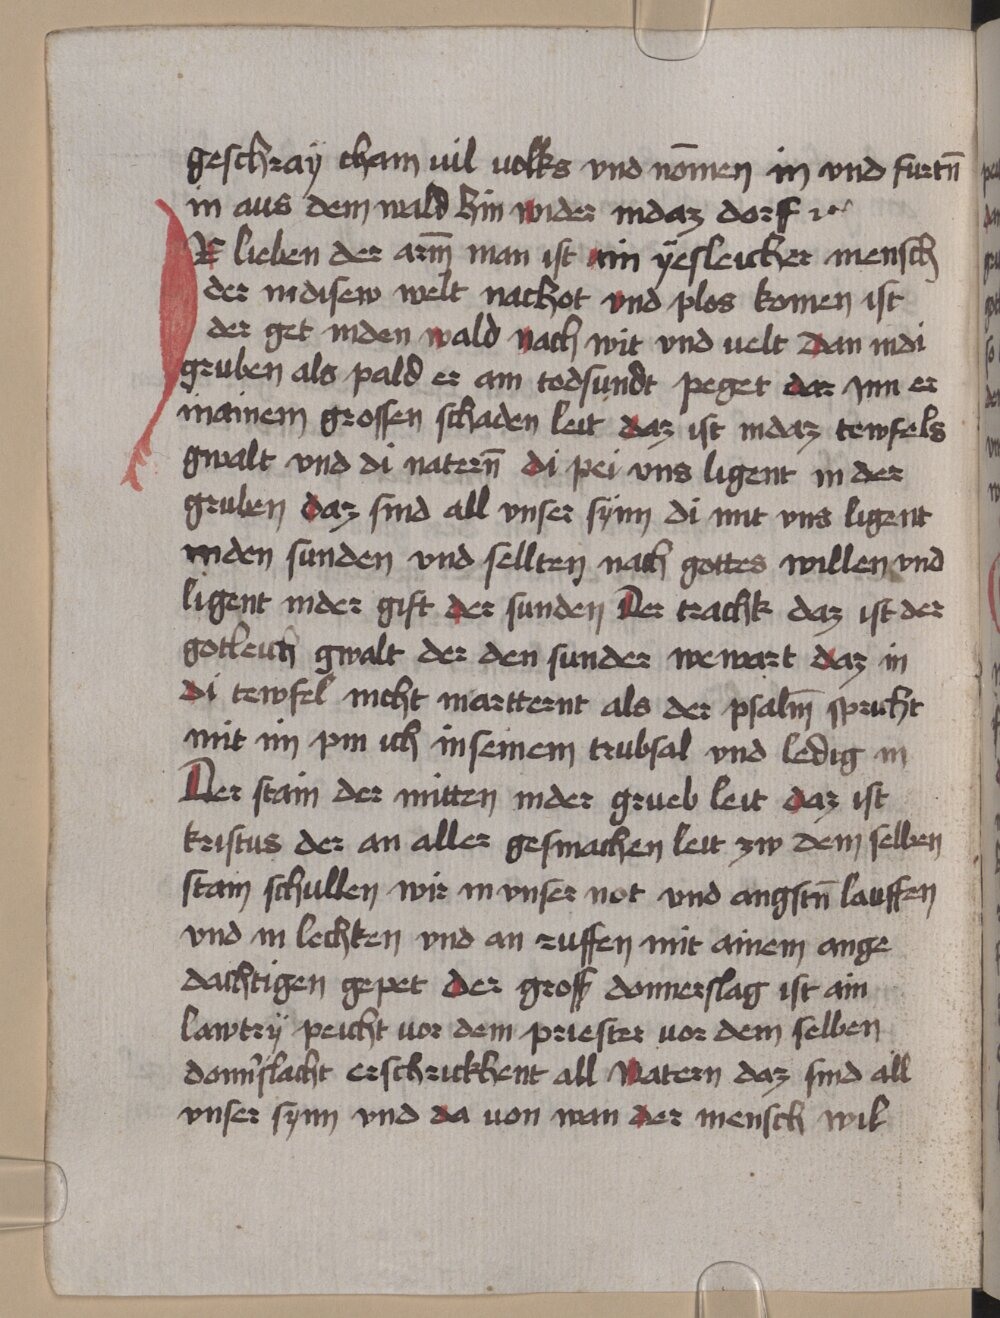 geschraÿ cham uil uolks vnd nōmen in vnd furtn̄
in aus dem wald hin wider indaz dorff
IR lieben der arm̄ man ist ain ÿesleicher mensch
der indisew welt nackhot vnd plos komen ist
der get inden wald nach wit vnd uelt Dan indi
gruben als pald er ain todsundt peget dar Inn er
inainem grossen schaden leit daz ist indaz tewfels
gwalt vnd di natern̄ di pei vns ligent in der
gruben daz sind all vnser sÿnn di mit vns ligent
inden sunden vnd sellten nach gottes willen vnd
ligent inder gift der sunden Der trackh daz ist der
gotleich gwalt der den sunder wewart daz in
di tewfel nicht martternt als der psalm̄ spricht
mit im pin ich inseinem trubsal vnd ledig in
Der stain der mitten inder grueb leit daz ist
kristus der an aller gesmachen leit zw dem selben
stain schullen wir in vnser not vnd angstn̄ lauffen
vnd in lechken vnd an ruffen mit ainem ange
dachtigen gepet der gross donnerslag ist ain
lawtrÿ peicht vor dem priester vor dem selben
donn̄slacht erschrickhent all Natern daz sind all
vnser sÿnn vnd da uon wan der mensch wil